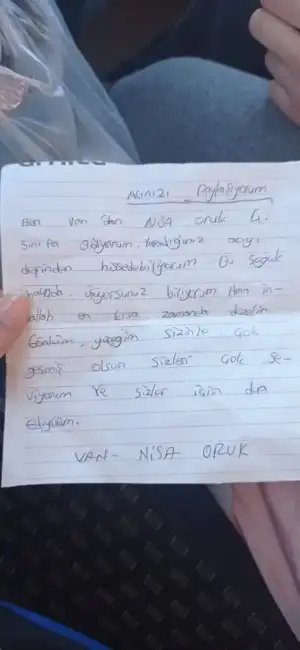 ACINIZI Paylaşıyorum
Ben Van dan NİSA oruk 4.
Sınıfa Gidiyorum. Yaşadığınız acıyı
hissedebiliyorum Bu soğuk
havada üşüyorsunuz biliyorum Ama in-
allah en kısa zamanda düzelir
Gönlüm, yüreğim sizinle Çok
geçmiş olsun Sizleri Çok se-
viyorum Ve Sizler için dua
Ediyorum.
VAN- NİSA ORUK